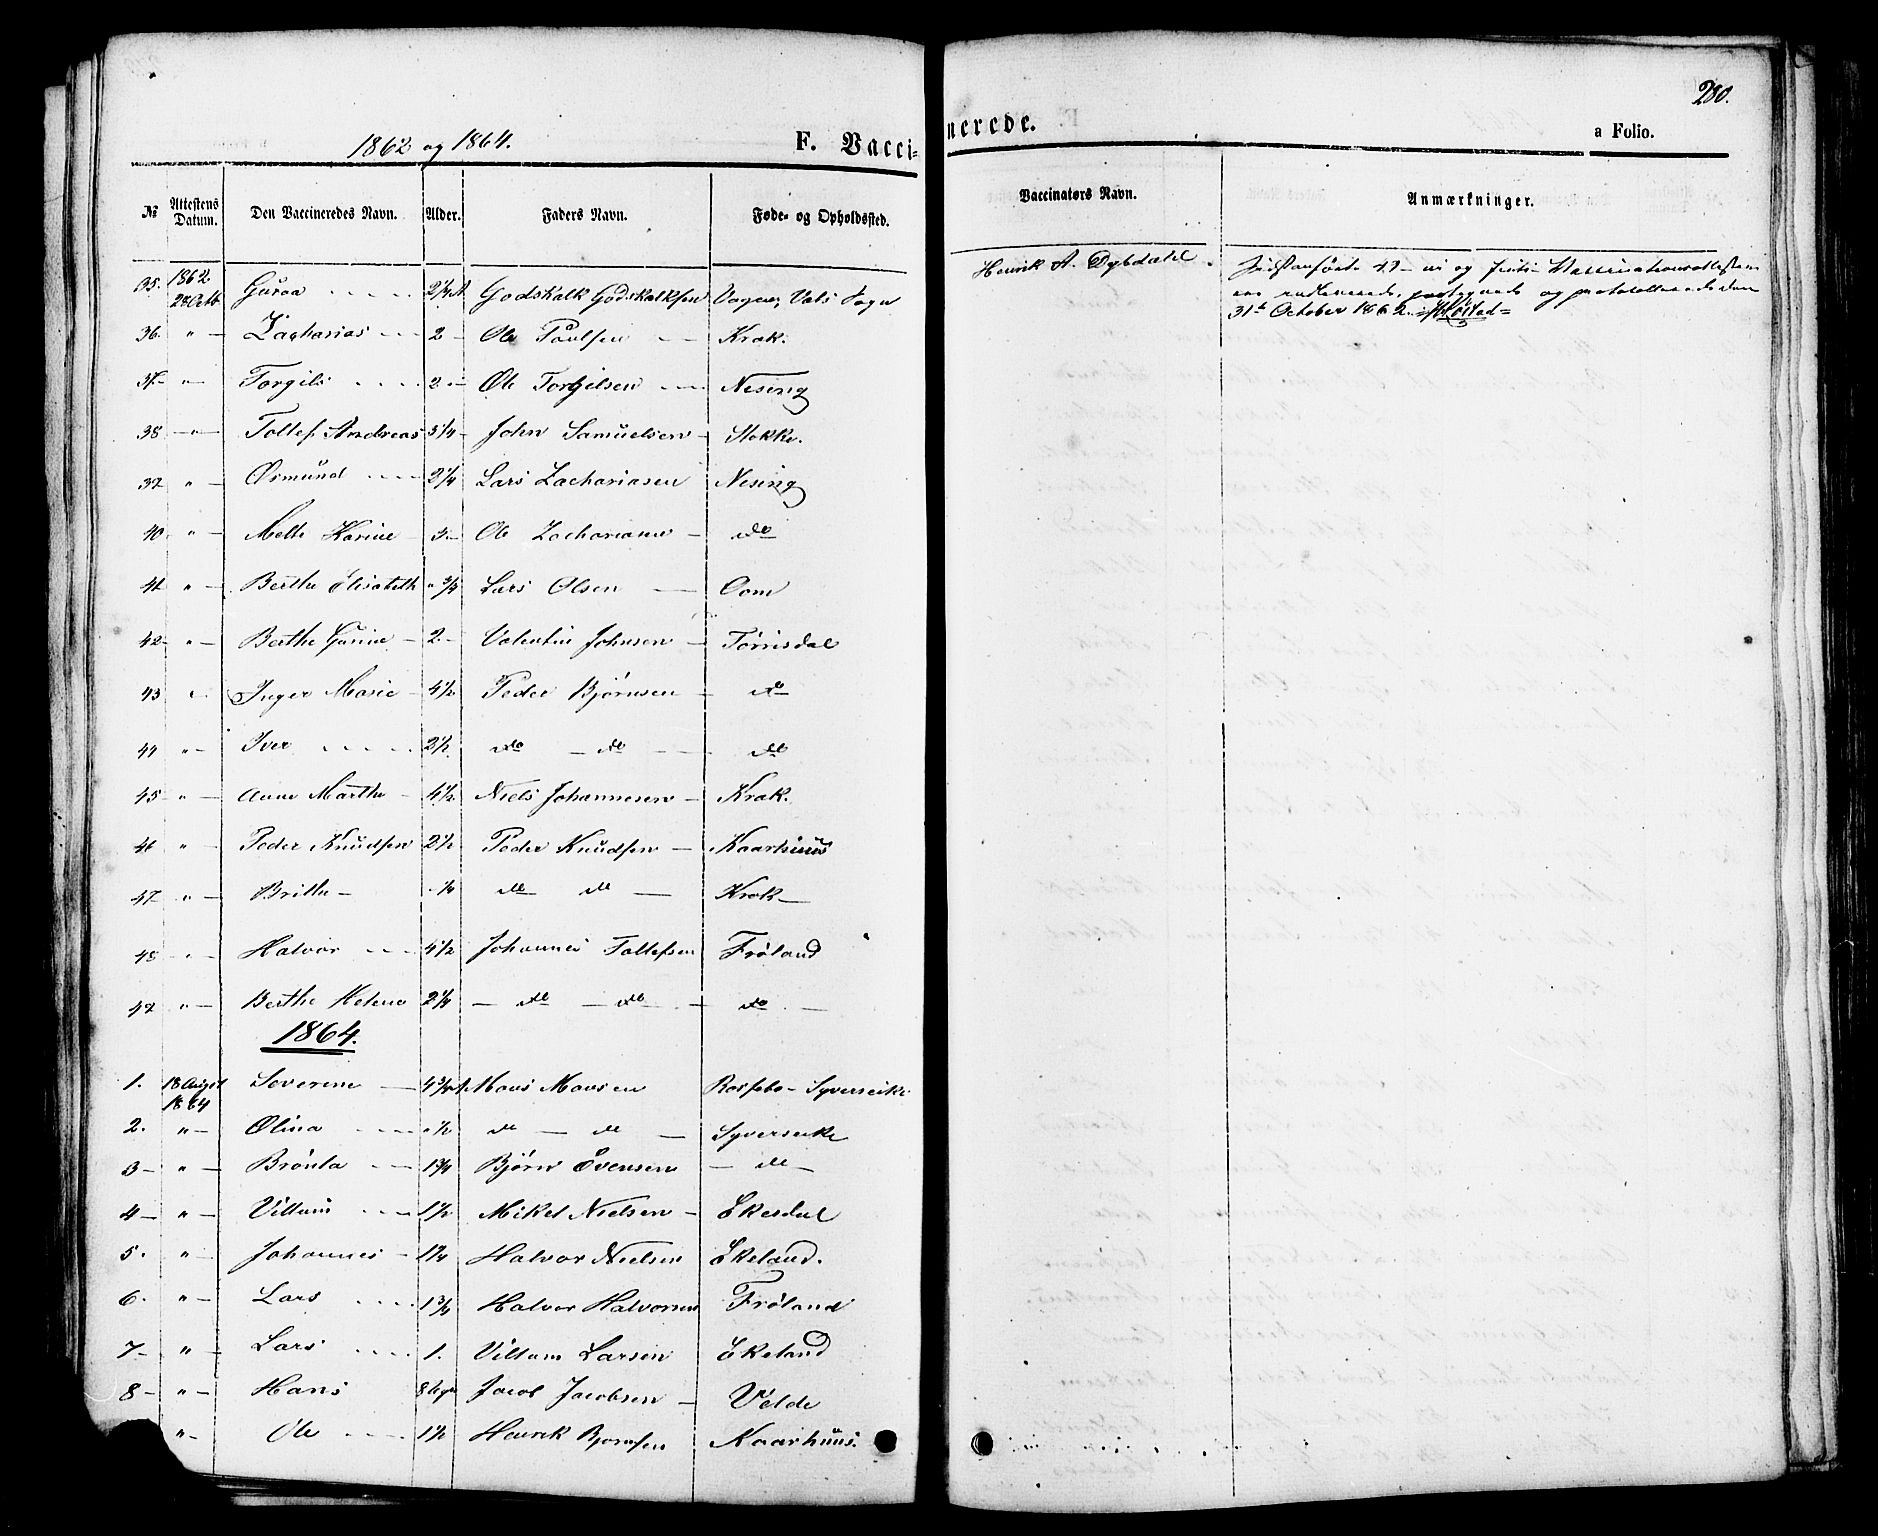 280.
1862 og 1864. F. Vaccinerede. a Folio.
№ Attestens Datum. Den Vaccineredes Navn. Alder. Faders Navn. Føde- og Opholdssted. Vaccinatørs Navn. Anmærkninger.
35. 1862 Guroa 2 1/4 A Godskalk Godskalksen Sogn Henrik A. Dybdahl
31te October 1862.
36. " — Zacharias 2 — Ole Poulsen — Krak.
37 — " — Torgils 2 — Ole Torgilsen — Nesing
38 — " — Tollef Andreas 3 1/4 — John Samuelsen — Stokke.
39 " — Osmund 2 1/4 Lars Zachariasen Nesing
40 " — Mette Karine — 3 — Ole Zachariasen — do
41 " — Berthe Elisabeth " 3/4 Lars Olsen — Oom
42 — " — Berthe Gurine — 2 — Valentin Johnsen — Tørrisdal
43 " Inger Marie — 4 1/2 Peder Bjørnsen — do
44 " — Iver 2 1/2 do — do — do
45 " — Anne Marthe — 4 1/2 Niels Johannesen — Krak.
46 " — Peder Knudsen 2 1/2 Peder Knudsen — Kaarhuus
47 " — Brithe — 1/4 do do — Krok —
48 " Halvor 4 1/2 Johannes Tollefsen Frøland
49 " — Berthe Helene 2 1/4 — do — do — do —
1864.
1. 18 August 1864 Severine — 4 3/4 A. Mons Monsen Rossebø — Syverseike
2. " — Olina " 1/2 do — do — Syverseike
3 — " — Brønla 1 3/4 Bjørn Evensen — do —
4 — " — Villum 1 1/2 Mikel Nielsen — Ekesdal
5. " — Johannes — 1 1/4 Halvor Nielsen Ekeland.
6. " — Lars 1 3/4 Halvor Halvorsen Frøland
7 — " — Lars 1. Villum Larsen Ekeland
8 — " — Hans Jacob Jacobsen — Velde
" — Ole 1 1/2 Henrik Bjørnsen Kaarhuus.